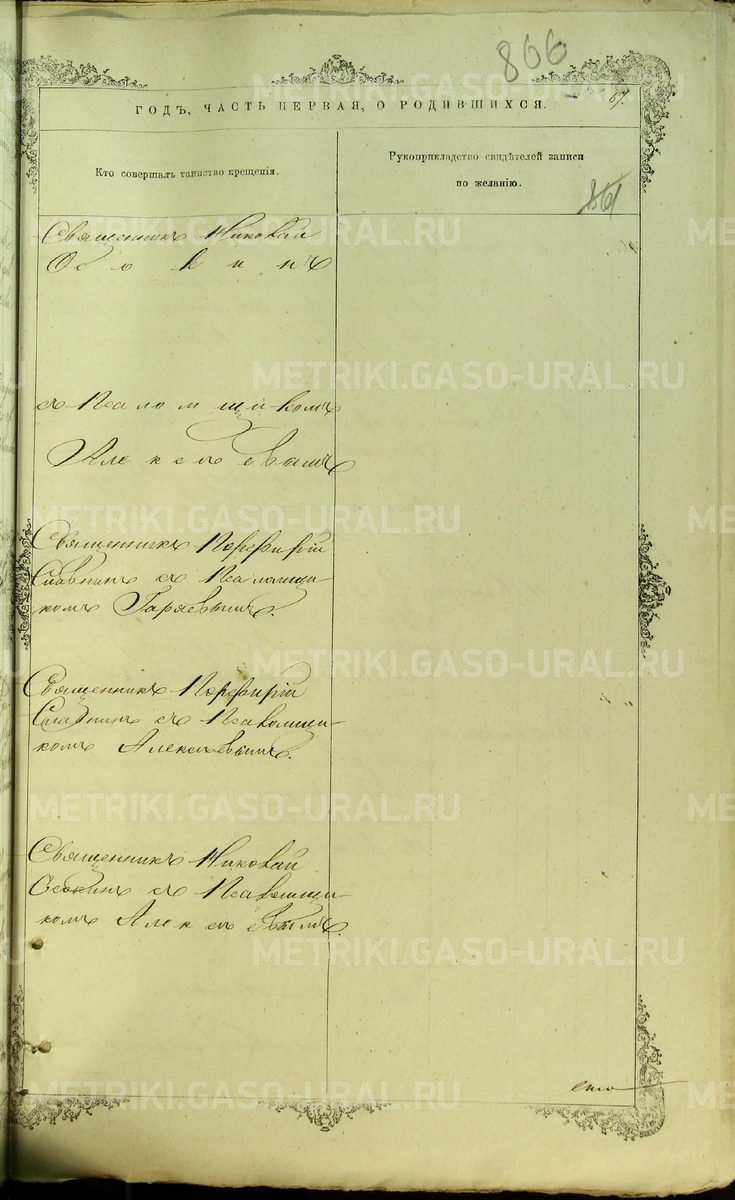 866
67.
ГОДЪ, ЧАСТЬ ПЕРВАЯ, О РОДИВШИХСЯ.
Кто совершалъ таинство крещенія.
Рукоприкладство свидѣтелей записи
по желанію.
Священникъ Николай
съ Псаломщикомъ
Алексѣевымъ
Священникъ Порфирій
Славнинъ съ Псаломщи-
комъ Гаряевымъ.
Священникъ Порфирій
Славнинъ съ Псаломщи-
комъ Алексѣевымъ.
Священникъ Николай
съ Псаломщи-
комъ Алексѣевымъ.
METRIKI.GASO-URAL.RU